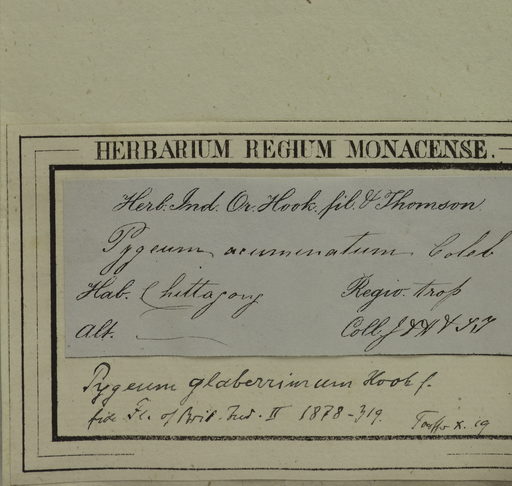 HERBARIUM REGIUM MONACENSE.
Herb. Ind. Or. Hook. fil. & Thomson
Pygeum acuminatum Coleb
Hab. Chittagong Regio. trop
Alt. Coll. J D H & T T
Pygeum glaberrimum Hook f.
fide Fl. of Brit. Ind. II 1878-319.